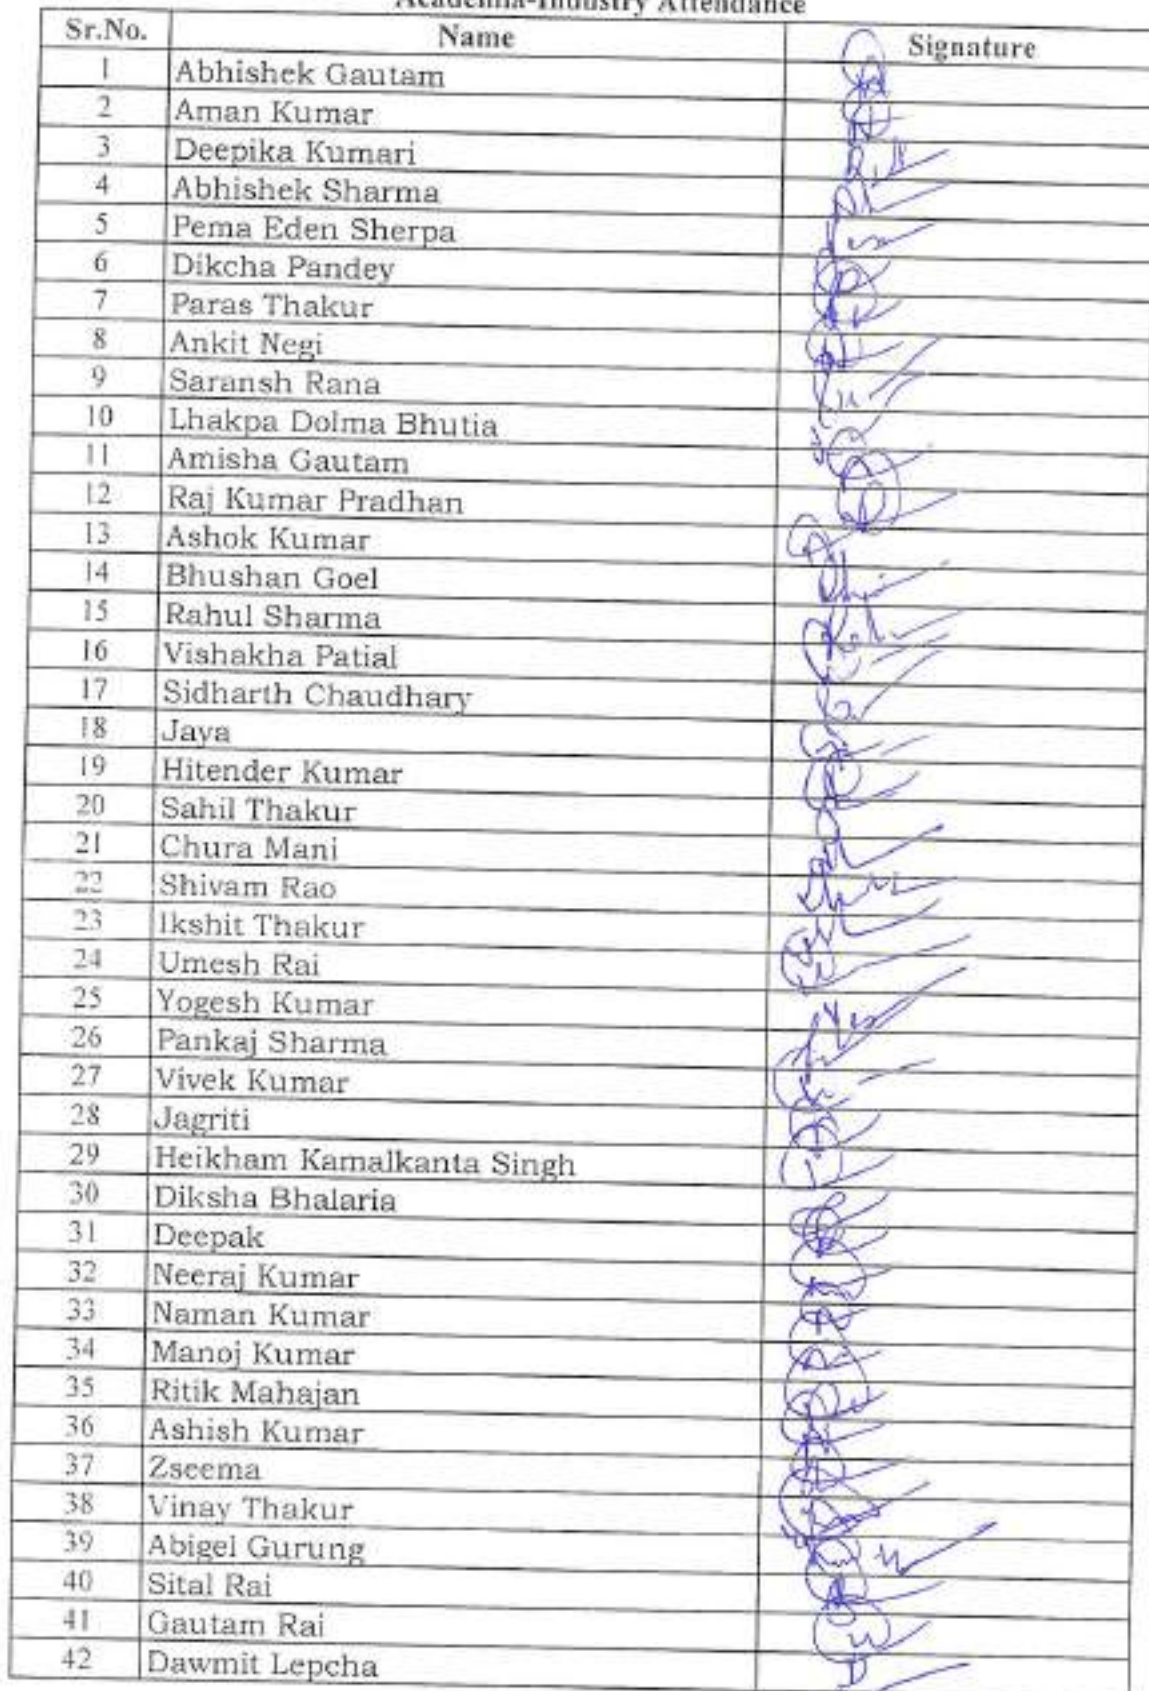 Academia-Industry Attendance
Sr.No. Name Signature
1 Abhishek Gautam
2 Aman Kumar
3 Deepika Kumari
4 Abhishek Sharma
5 Pema Eden Sherpa
6 Dikcha Pandey
7 Paras Thakur
8 Ankit Negi
9 Saransh Rana
10 Lhakpa Dolma Bhutia
11 Amisha Gautam
12 Raj Kumar Pradhan
13 Ashok Kumar
14 Bhushan Goel
15 Rahul Sharma
16 Vishakha Patial
17 Sidharth Chaudhary
18 Jaya
19 Hitender Kumar
20 Sahil Thakur
21 Chura Mani
22 Shivam Rao
23 Ikshit Thakur
24 Umesh Rai
25 Yogesh Kumar
26 Pankaj Sharma
27 Vivek Kumar
28 Jagriti
29 Heikham Kamalkanta Singh
30 Diksha Bhalaria
31 Deepak
32 Neeraj Kumar
33 Naman Kumar
34 Manoj Kumar
35 Ritik Mahajan
36 Ashish Kumar
37 Zseema
38 Vinay Thakur
39 Abigel Gurung
40 Sital Rai
41 Gautam Rai
42 Dawmit Lepcha